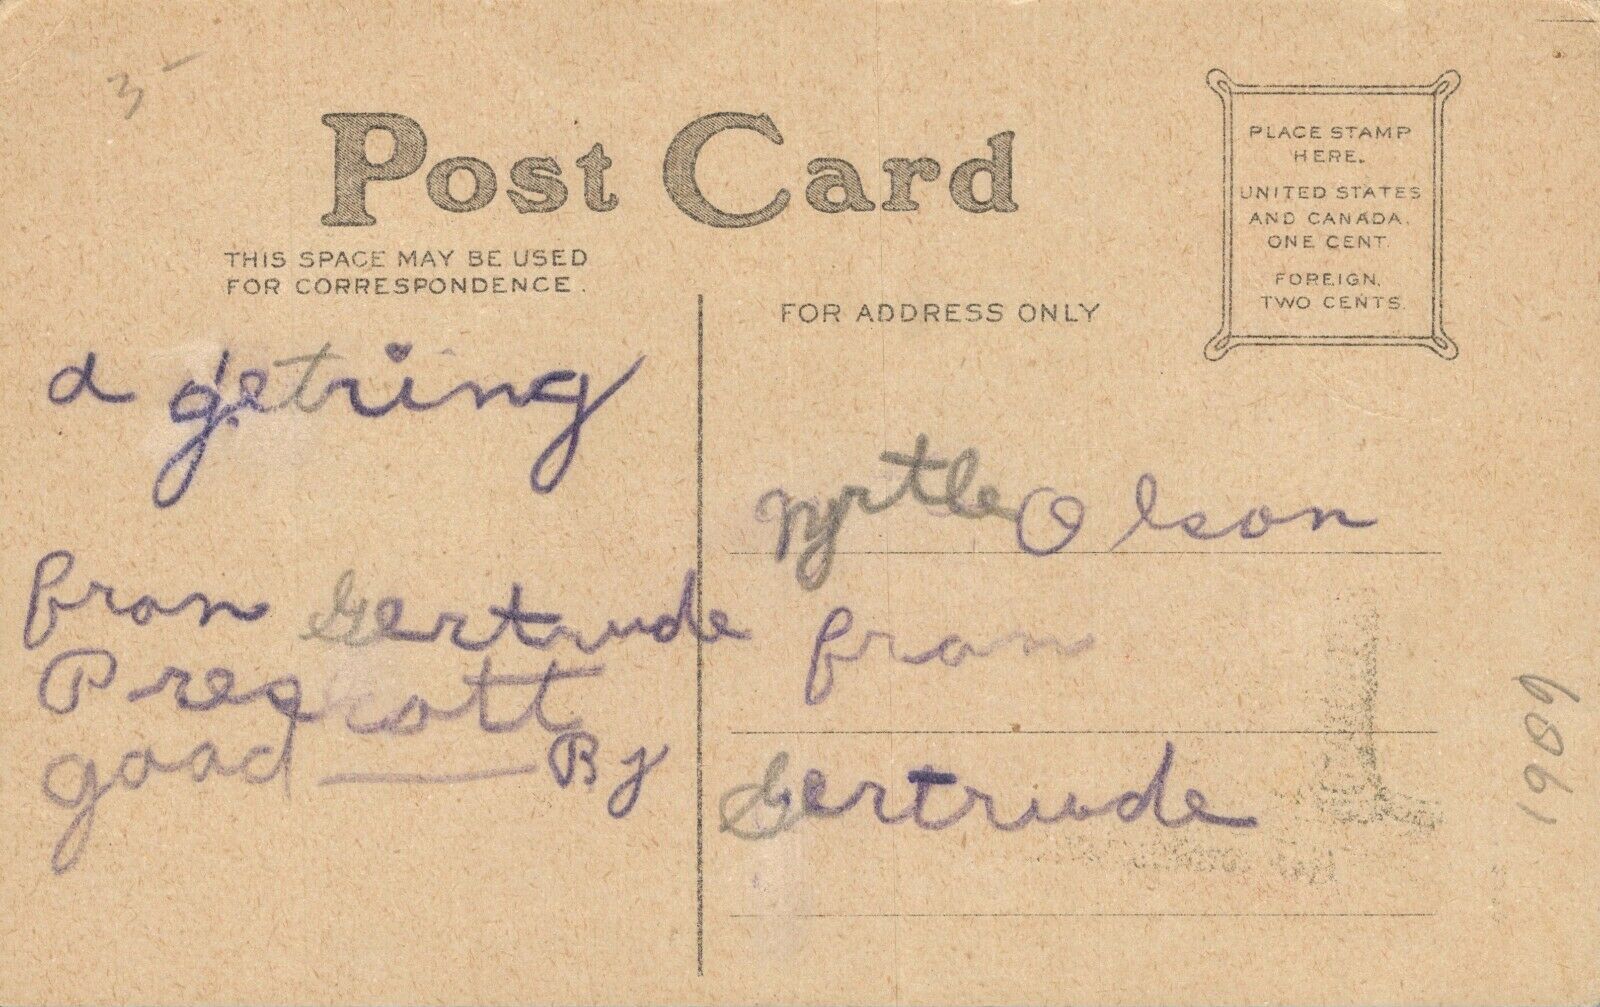 3-
Post Card
THIS SPACE MAY BE USED
FOR CORRESPONDENCE.
a getring
fron Gertrude
Prescott
good — By
FOR ADDRESS ONLY
PLACE STAMP
HERE.
UNITED STATES
AND CANADA.
ONE CENT.
FOREIGN,
TWO CENTS.
Myrtle Olson
fron
Gertrude
1909